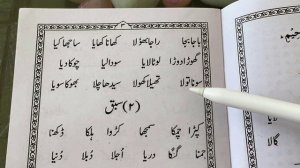 ۳
باجا بجا راجا بھولا کھانا کھایا ساجھا کیا
گھوڑا دوڑا لوٹا لایا سودا لیا چوکا دیا
سونا تولا تھیلا کھولا سیدھا چلا بھوکا سویا
(۲) سبق
کپڑا چمکا سمجھا کڑوا ہلکا ڈھکنا
جمنا گنگا دریا اُجلا دُبلا دُنیا